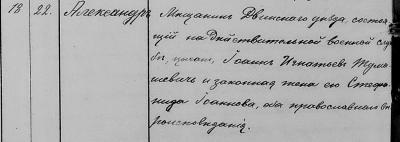 13 22. Александръ Мѣщанинъ Двинскаго уѣзда, состоя-
щій на дѣйствительной военной служ-
бѣ, Іоаннъ Игнатьевъ Тума-
шевичъ и законная жена его Стефа-
нида Іоаннова, оба православнаго вѣ-
роисповѣданія.